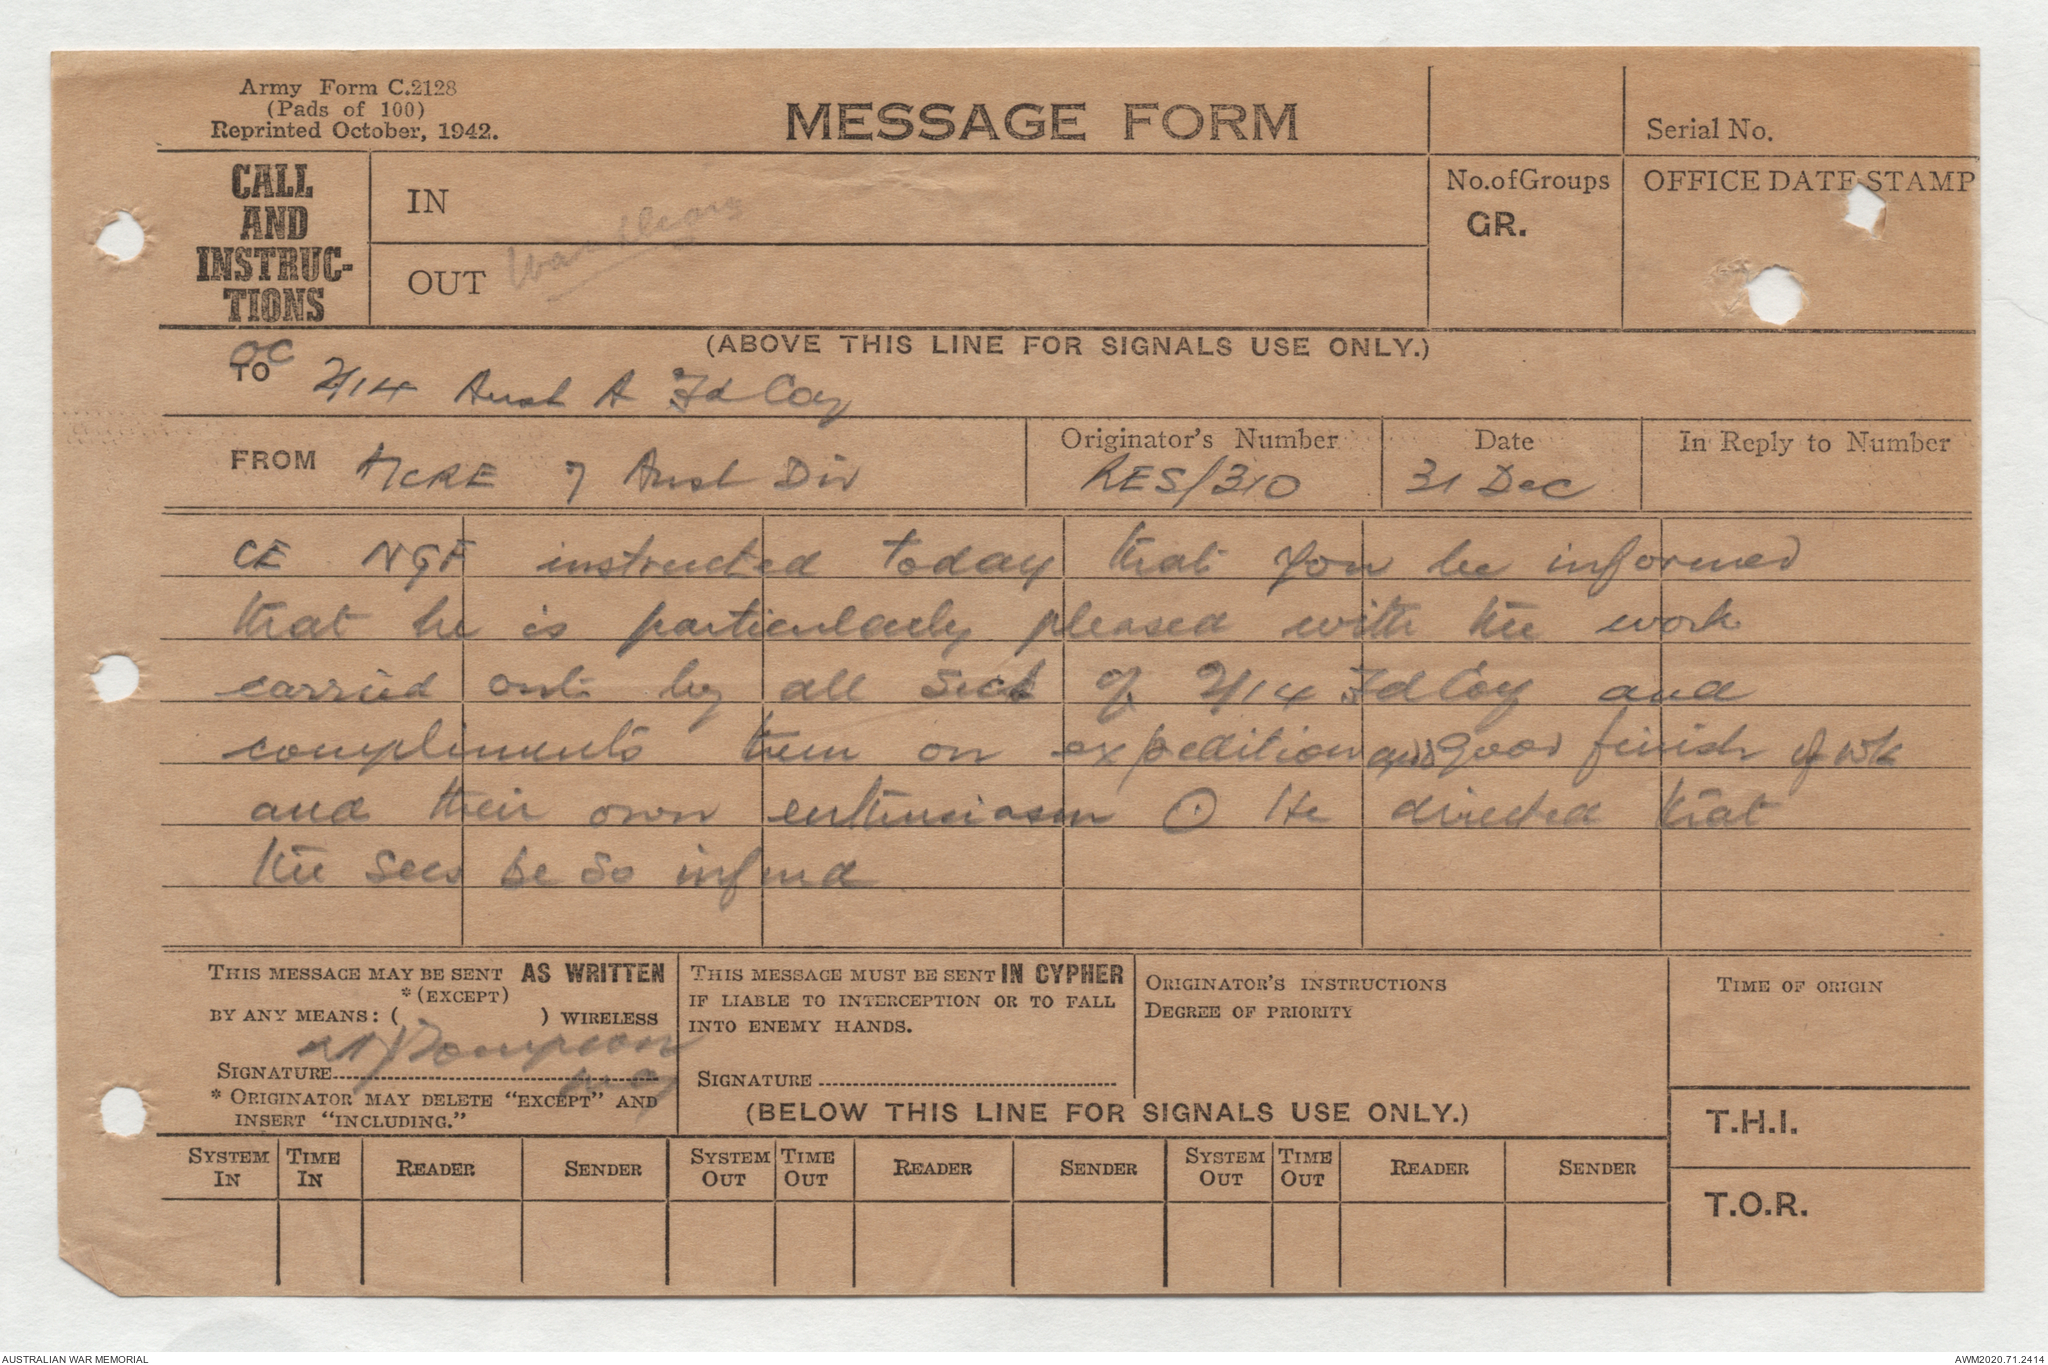 Army Form C.2128
(Pads of 100)
Reprinted October, 1942.
MESSAGE FORM
Serial No.
CALL AND INSTRUC-TIONS
IN
No.ofGroups
GR.
OFFICE DATE STAMP
OUT
(ABOVE THIS LINE FOR SIGNALS USE ONLY.)
OC
TO 2/14 Aust A Fd Coy
FROM A/CRE 7 Aust Div
Originator's Number RES/310
Date 31 Dec
In Reply to Number
CE NGF instructed today that you be informed
that he is particularly pleased with the work
carried out by all sects of 2/14 Fd Coy and
compliments them on expedition and good finish of wk
and their own enthusiasm ⊙ He directed that
the secs be so infmd
THIS MESSAGE MAY BE SENT AS WRITTEN
*(EXCEPT)
BY ANY MEANS: ( ) WIRELESS
SIGNATURE
* ORIGINATOR MAY DELETE "EXCEPT" AND
INSERT "INCLUDING."
THIS MESSAGE MUST BE SENT IN CYPHER
IF LIABLE TO INTERCEPTION OR TO FALL
INTO ENEMY HANDS.
SIGNATURE
ORIGINATOR'S INSTRUCTIONS
DEGREE OF PRIORITY
TIME OF ORIGIN
(BELOW THIS LINE FOR SIGNALS USE ONLY.)
T.H.I.
SYSTEM IN TIME IN READER SENDER SYSTEM OUT TIME OUT READER SENDER SYSTEM OUT TIME OUT READER SENDER
T.O.R.
AUSTRALIAN WAR MEMORIAL
AWM2020.71.2414